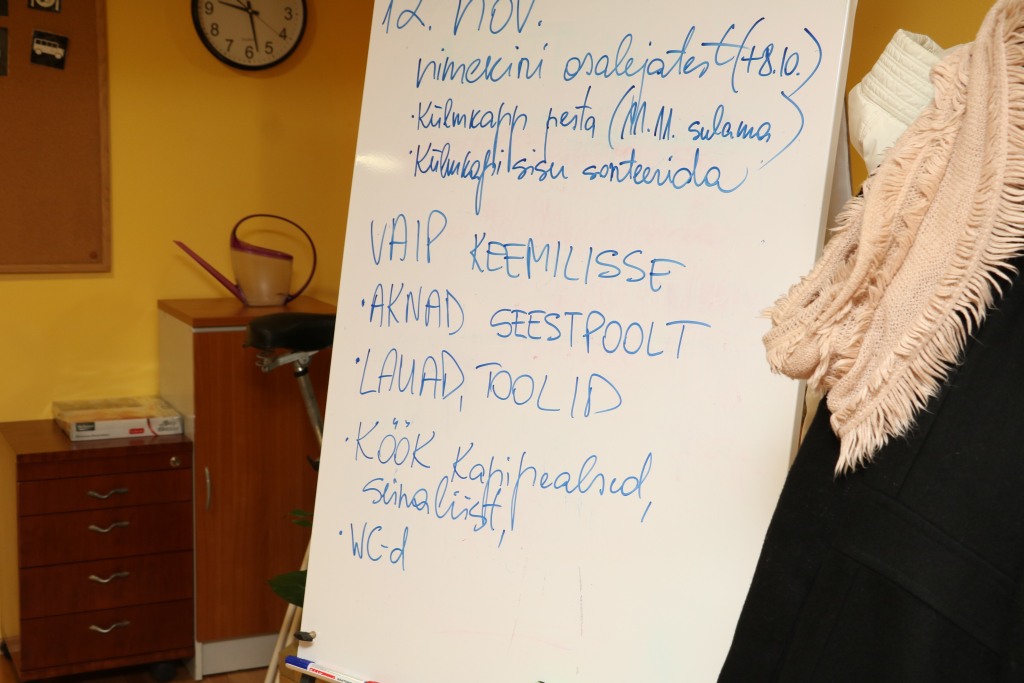 12. NOV.
nimekiri osalejatest (+8.10.)
· Külmkapp pesta (M.11. sulama)
· Külmkapi sisu sorteerida
VAIP KEEMILISSE
· AKNAD SEESTPOOLT
· LAUAD, TOOLID
· KÖÖK Kapipealsed,
seinaliist,
· WC-d
3
4
5
6
7
8
9